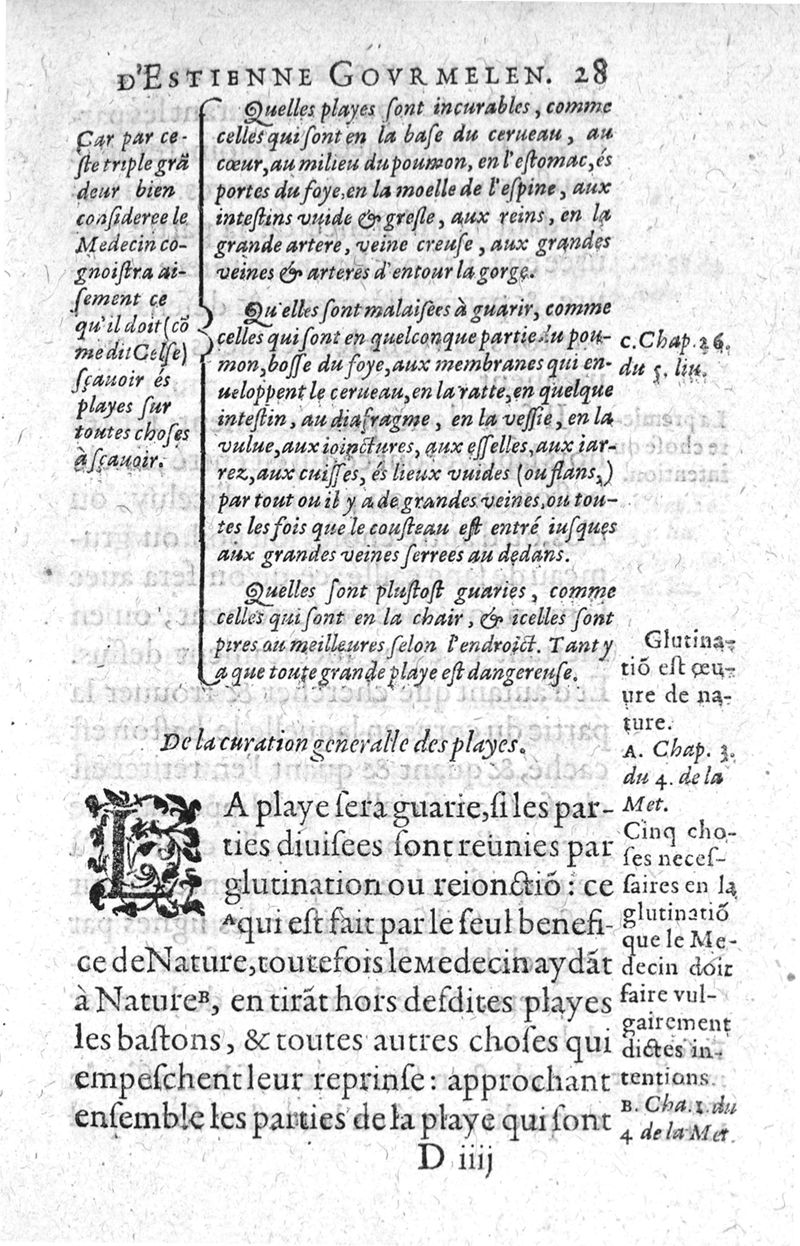 D'ESTIENNE GOVRMELEN. 28
Car par ce-
ſte triple grā
deur bien
conſideree le
Medecin co-
gnoiſtra ai-
ſement ce
qu'il doit (cō
me dit Celſe)
ſçauoir és
playes ſur
toutes choſes
à ſçauoir.
Quelles playes ſont incurables, comme
celles qui ſont en la baſe du cerueau, au
cœur, au milieu du poumon, en l'eſtomac, és
portes du foye, en la moelle de l'eſpine, aux
inteſtins vuide & greſle, aux reins, en la
grande artere, veine creuſe, aux grandes
veines & arteres d'entour la gorge.
Qu'elles ſont malaiſées à guarir, comme
celles qui ſont en quelconque partie du pou-
mon, boſſe du foye, aux membranes qui en-
ueloppent le cerueau, en la ratte, en quelque
inteſtin, au diafragme, en la veſſie, en la
vulue, aux ioinctures, aux eſſelles, aux iar-
rez, aux cuiſſes, és lieux vuides (ou flans,)
par tout ou il y a de grandes veines, ou tou-
tes les fois que le couſteau eſt entré iuſques
aux grandes veines ſerrees au dedans.
Quelles ſont pluſtoſt guaries, comme
celles qui ſont en la chair, & icelles ſont
pires ou meilleures ſelon l'endroict. Tant y
a que toute grande playe eſt dangereuſe.
C. Chap. 26.
du 5. liu.
De la curation generalle des playes.
LA playe ſera guarie, ſi les par-
ties diuiſees ſont reunies par
glutination ou reionctiō: ce
ᴬqui eſt fait par le ſeul benefi-
ce de Nature, toutefois le Medecin aydāt
à Natureᴮ, en tirāt hors deſdites playes
les baſtons, & toutes autres choſes qui
empeſchent leur reprinſe: approchant
enſemble les parties de la playe qui ſont
Glutina-
tiō eſt œu-
ure de na-
ture.
A. Chap. 3.
du 4. de la
Met.
Cinq cho-
ſes neceſ-
ſaires en la
glutinatiō
que le Me-
decin doit
faire vul-
gairement
dictes in-
tentions.
B. Cha. 1. du
4 de la Met.
D iiij